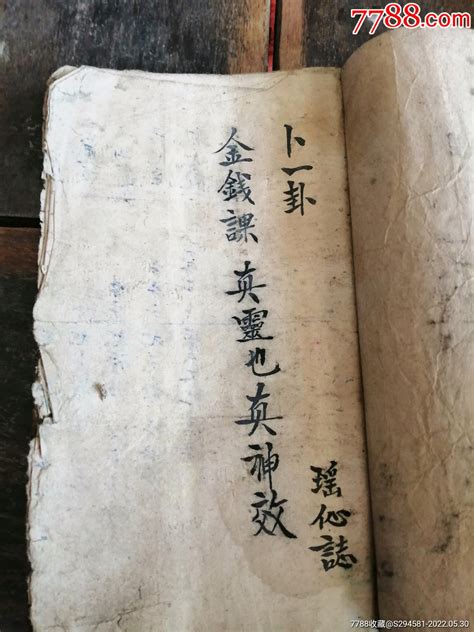 7788.com
卜一卦
金錢課 真靈也真神效
瑶仙誌
7788收藏@S294581-2022.05.30